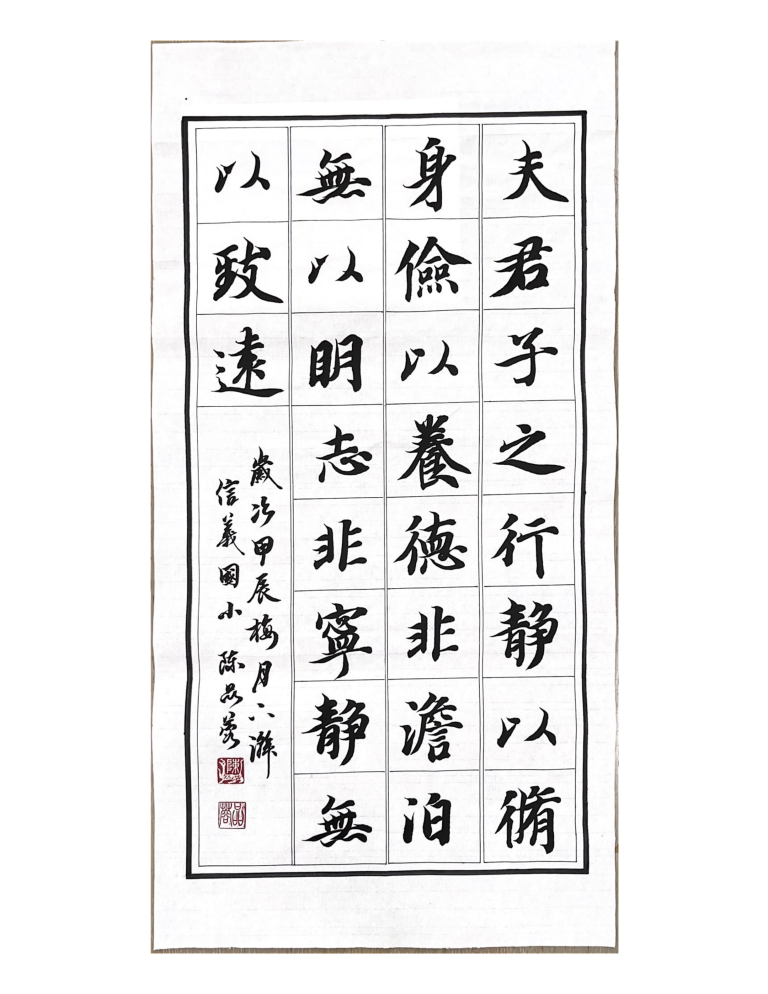 夫君子之行靜以脩
身儉以養德非澹泊
無以明志非寧靜無
以致遠
歲次甲辰梅月下澣
信義國小 陳品蓉
陳
品蓉